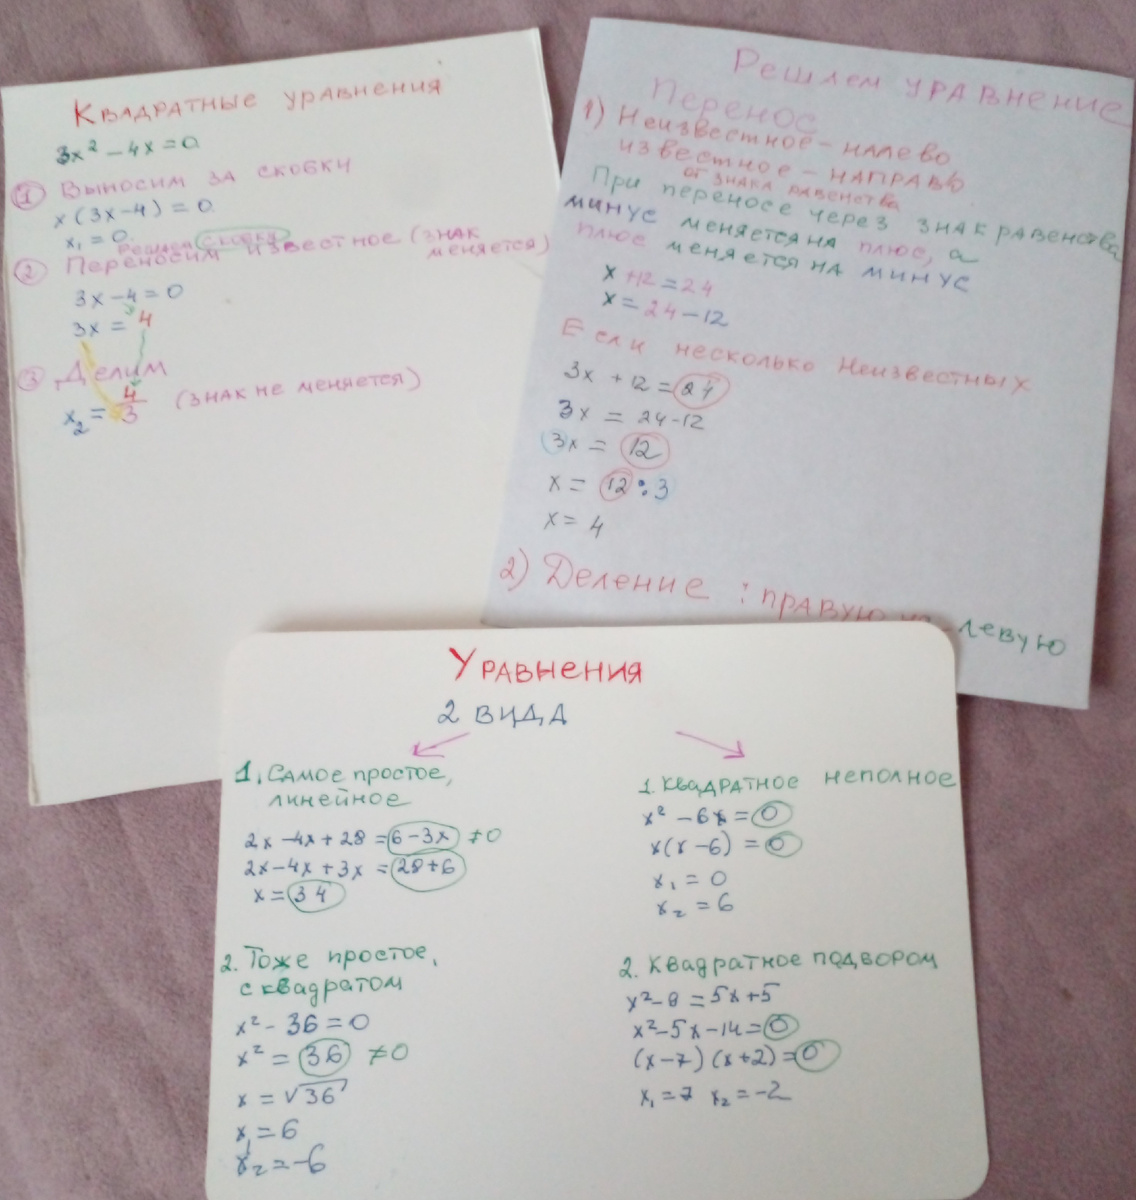 Квадратные уравнения
3x² - 4x = 0
① Выносим за скобки
x(3x-4) = 0
x₁ = 0
Решаем скобку
② Переносим известное (знак меняется)
3x - 4 = 0
3x = 4
③ Делим
x₂ = 4/3 (знак не меняется)
Решаем уравнение
Перенос
1) Неизвестное - налево
известное - направо
от знака равенства
При переносе через знак равенства
минус меняется на плюс, а
плюс меняется на минус
x + 12 = 24
x = 24 - 12
Если несколько неизвестных
3x + 12 = 24
3x = 24 - 12
3x = 12
x = 12 : 3
x = 4
2) Деление : правую на левую
Уравнения
2 вида
1. Самое простое,
линейное
2x - 4x + 28 = 6 - 3x ≠ 0
2x - 4x + 3x = 28 + 6
x = 34
2. Тоже простое,
с квадратом
x² - 36 = 0
x² = 36 ≠ 0
x = √36
x₁ = 6
x₂ = -6
1. Квадратное неполное
x² - 6x = 0
x(x - 6) = 0
x₁ = 0
x₂ = 6
2. Квадратное подвором
x² - 8 = 5x + 5
x² - 5x - 14 = 0
(x - 7)(x + 2) = 0
x₁ = 7 x₂ = -2